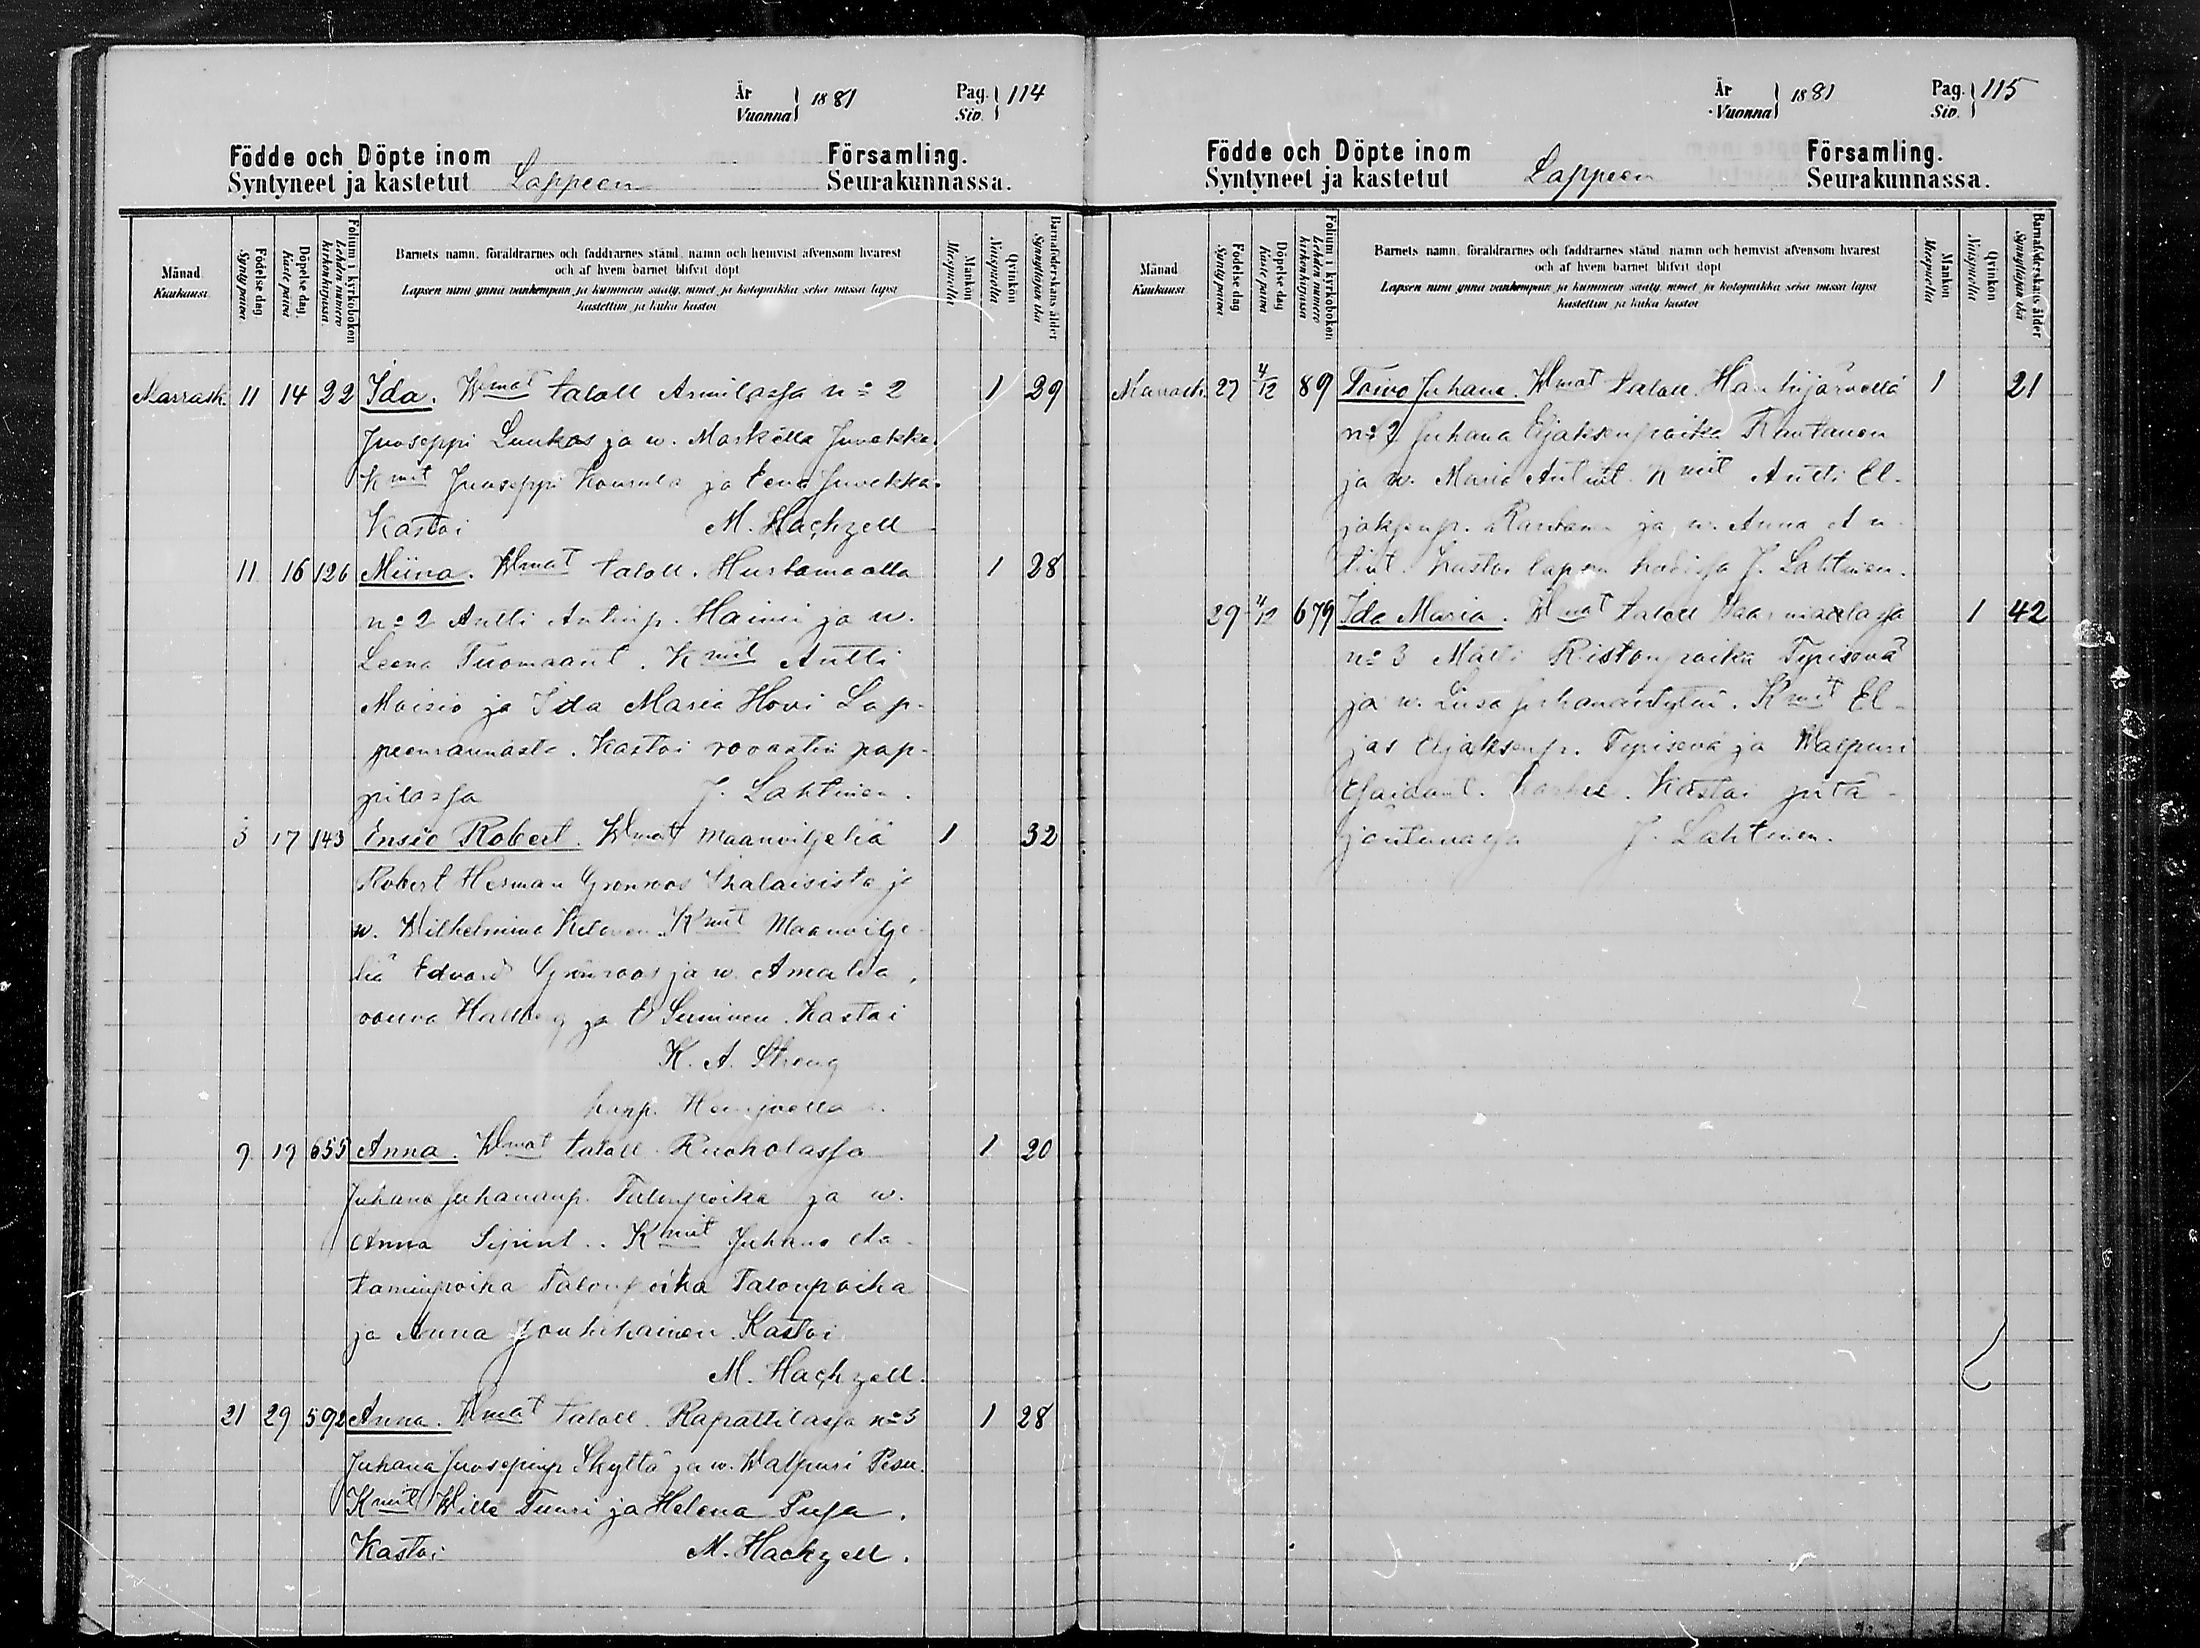 År
Vuonna 1881
Pag.
Siv. 114
Födde och Döpte inom Församling.
Syntyneet ja kastetut Lappeen Seurakunnassa.
Månad
Kuukausi
Födelse dag
Synty päivä
Döpelse dag
Kaste päivä
Folium i kyrkoboken
Lehden numero kirkonkirjassa
Barnets namn, föräldrarnes och faddrarnes stånd, namn och hemvist äfvensom hvarest
och af hvem barnet blifvit döpt
Lapsen nimi ynnä vanhempain ja kummein sääty, nimet ja kotopaikka sekä missä lapsi
kastettiin ja kuka kastoi
Mankön
Miespuolia
Qvinkön
Naispuolia
Barnaföderskans ålder
Synnyttäjän ikä
Marrask. 11 14 22 Ida. Wmat taloll Armilassa no 2 1 29
Juoseppi Luukas ja w. Marketta Juvakka.
Kmit Juoseppi Kourula ja Eeva Juvakka.
Kastoi M. Hachzell
11 16 126 Miina. Wmat taloll. Hurtamaalla 1 28
no 2 Antti Antinp. Haimi ja w.
Leena Tuomaant. Kmit Antti
Maisio ja Ida Maria Hovi Lap-
peenrannasta. Kastoi rovastin pap-
pilassa J. Lahtinen.
3 17 143 Ensio Robert. Wmat maanviljeliä 1 32
Robert Herman Grönroos Ihalaisista ja
w. Wilhelmina Kiloven. Kmit Maanvilje-
liä Edvard Grönroos ja w. Amalia,
rouva Hallberg ja E Suninen. Kastoi
K. A. Streng
kapp. Heinjoella.
9 19 655 Anna. Wmat taloll. Ruoholassa 1 20
Juhana Juhananp. Talonpoika ja w.
Anna Sipint.. Kmit Juhana Aa-
taminpoika Talonpoika Talonpoika
ja Anna Jouhikainen. Kastoi
M. Hachzell.
21 29 592 Anna. Wmat taloll. Rapattilassa no 3 1 28
Juhana Juosepinp Skyttä ja w. Walpuri Pesu.
Kmit Wille Tuuri ja Helena Pusa.
Kastoi M. Hachzell.
År
Vuonna 1881
Pag.
Siv. 115
Födde och Döpte inom Församling.
Syntyneet ja kastetut Lappeen Seurakunnassa.
Månad
Kuukausi
Födelse dag
Synty päivä
Döpelse dag
Kaste päivä
Folium i kyrkoboken
Lehden numero kirkonkirjassa
Barnets namn, föräldrarnes och faddrarnes stånd, namn och hemvist äfvensom hvarest
och af hvem barnet blifvit döpt
Lapsen nimi ynnä vanhempain ja kummein sääty, nimet ja kotopaikka sekä missä lapsi
kastettiin ja kuka kastoi
Mankön
Miespuolia
Qvinkön
Naispuolia
Barnaföderskans ålder
Synnyttäjän ikä
Marrask. 27 4/12 89 Toivo Juhana. Wmat taloll. Hanhijärvellä 1 21
no 7 Juhana Eljaksenpoika Rautanen
ja w. Maria Antint. Kmit Antti El-
jaksenp. Rautanen ja w. Anna An-
tint. Kastoi lapsen kodissa J. Lahtinen.
29 4/12 679 Ida Maria. Wmat taloll 1 42
no 3 Matti Ristonpoika Typisevä
ja w. Liisa Juhanantytär. Kmit El-
jas Eljaksenp. Typisevä ja Walpuri
Esaiant. Karhu. Kastoi pitä-
jäntuvassa J. Lahtinen.